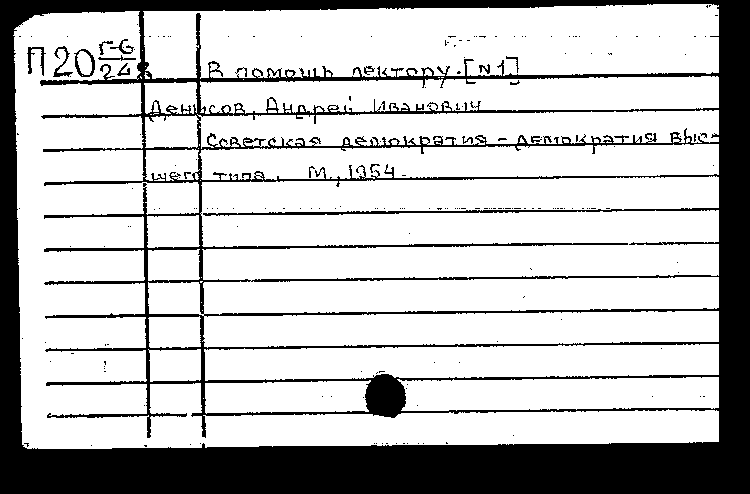 П20 Г-6/248 В помощь лектору. [N1]
Денисов, Андрей Иванович
Советская демократия - демократия выс-
шего типа. М., 1954.